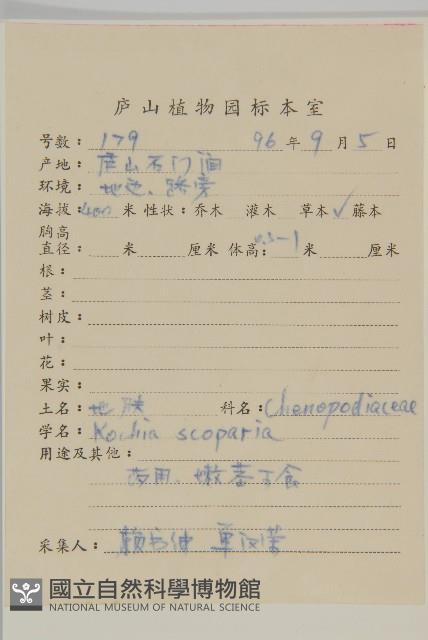 庐山植物园标本室
号数: 179 96 年 9 月 5 日
产地: 庐山石门涧
环境: 地边、路旁
海拔: 400 米 性状: 乔木 灌木 草本 ✓ 藤本
胸高
直径: 米 厘米 体高: 0.3-1 米 厘米
根:
茎:
树皮:
叶:
花:
果实:
土名: 地肤 科名: Chenopodiaceae
学名: Kochia scoparia
用途及其他:
药用、嫩茎可食
采集人:
國立自然科學博物館
NATIONAL MUSEUM OF NATURAL SCIENCE